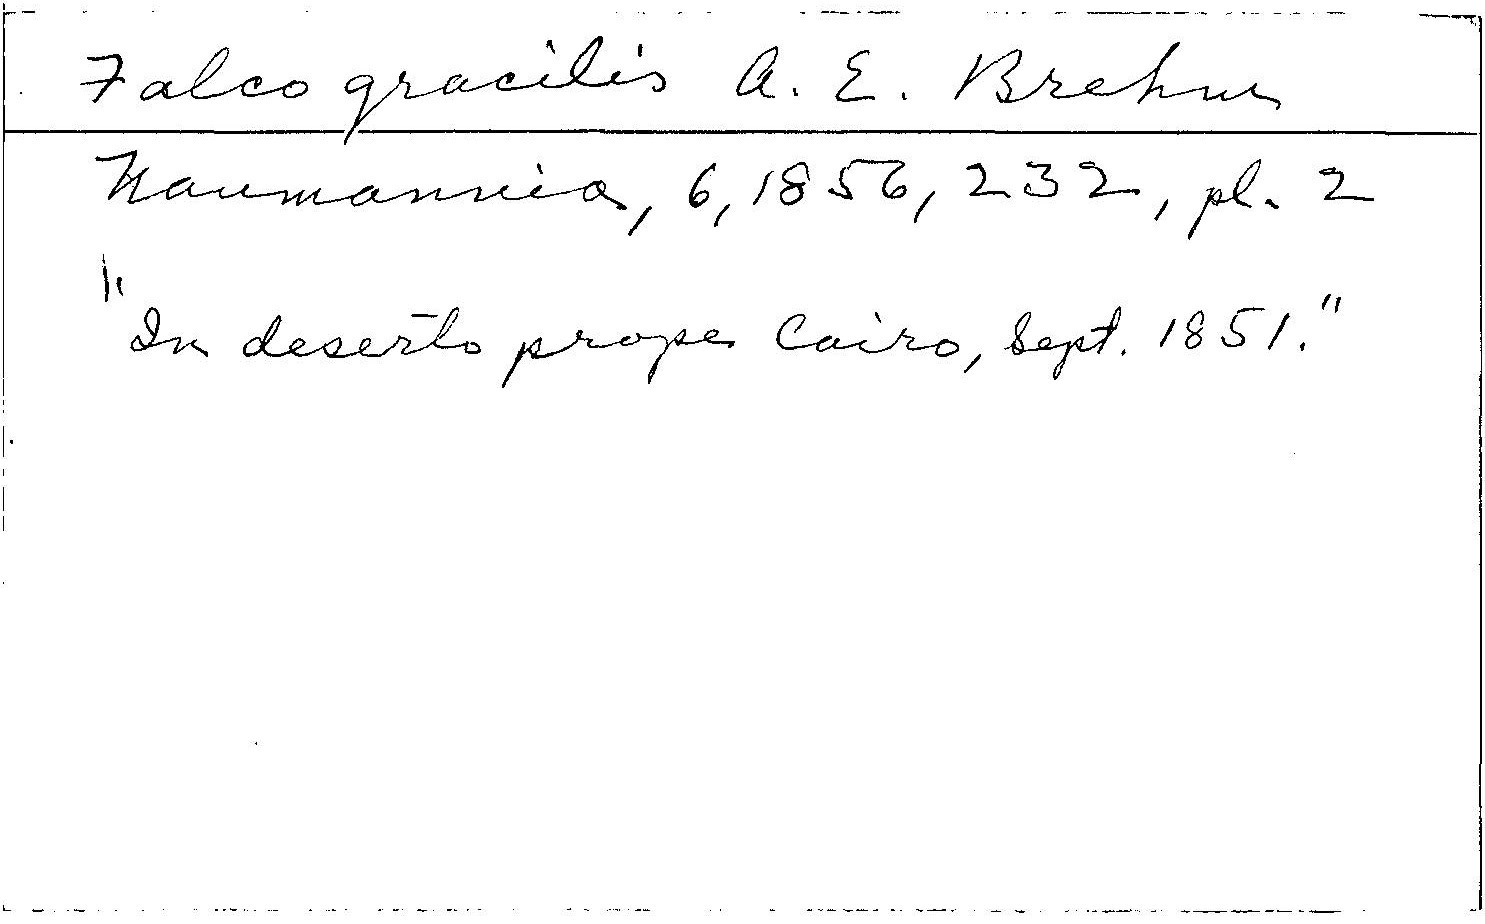 Falco gracilis A. E. Brehm
Naumannia, 6, 1856, 232, pl. 2
"In deserto prope Cairo, Sept. 1851."